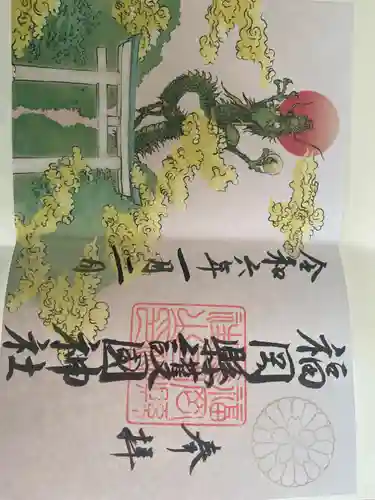 奉拝
福岡縣護國神社
令和六年一月二日